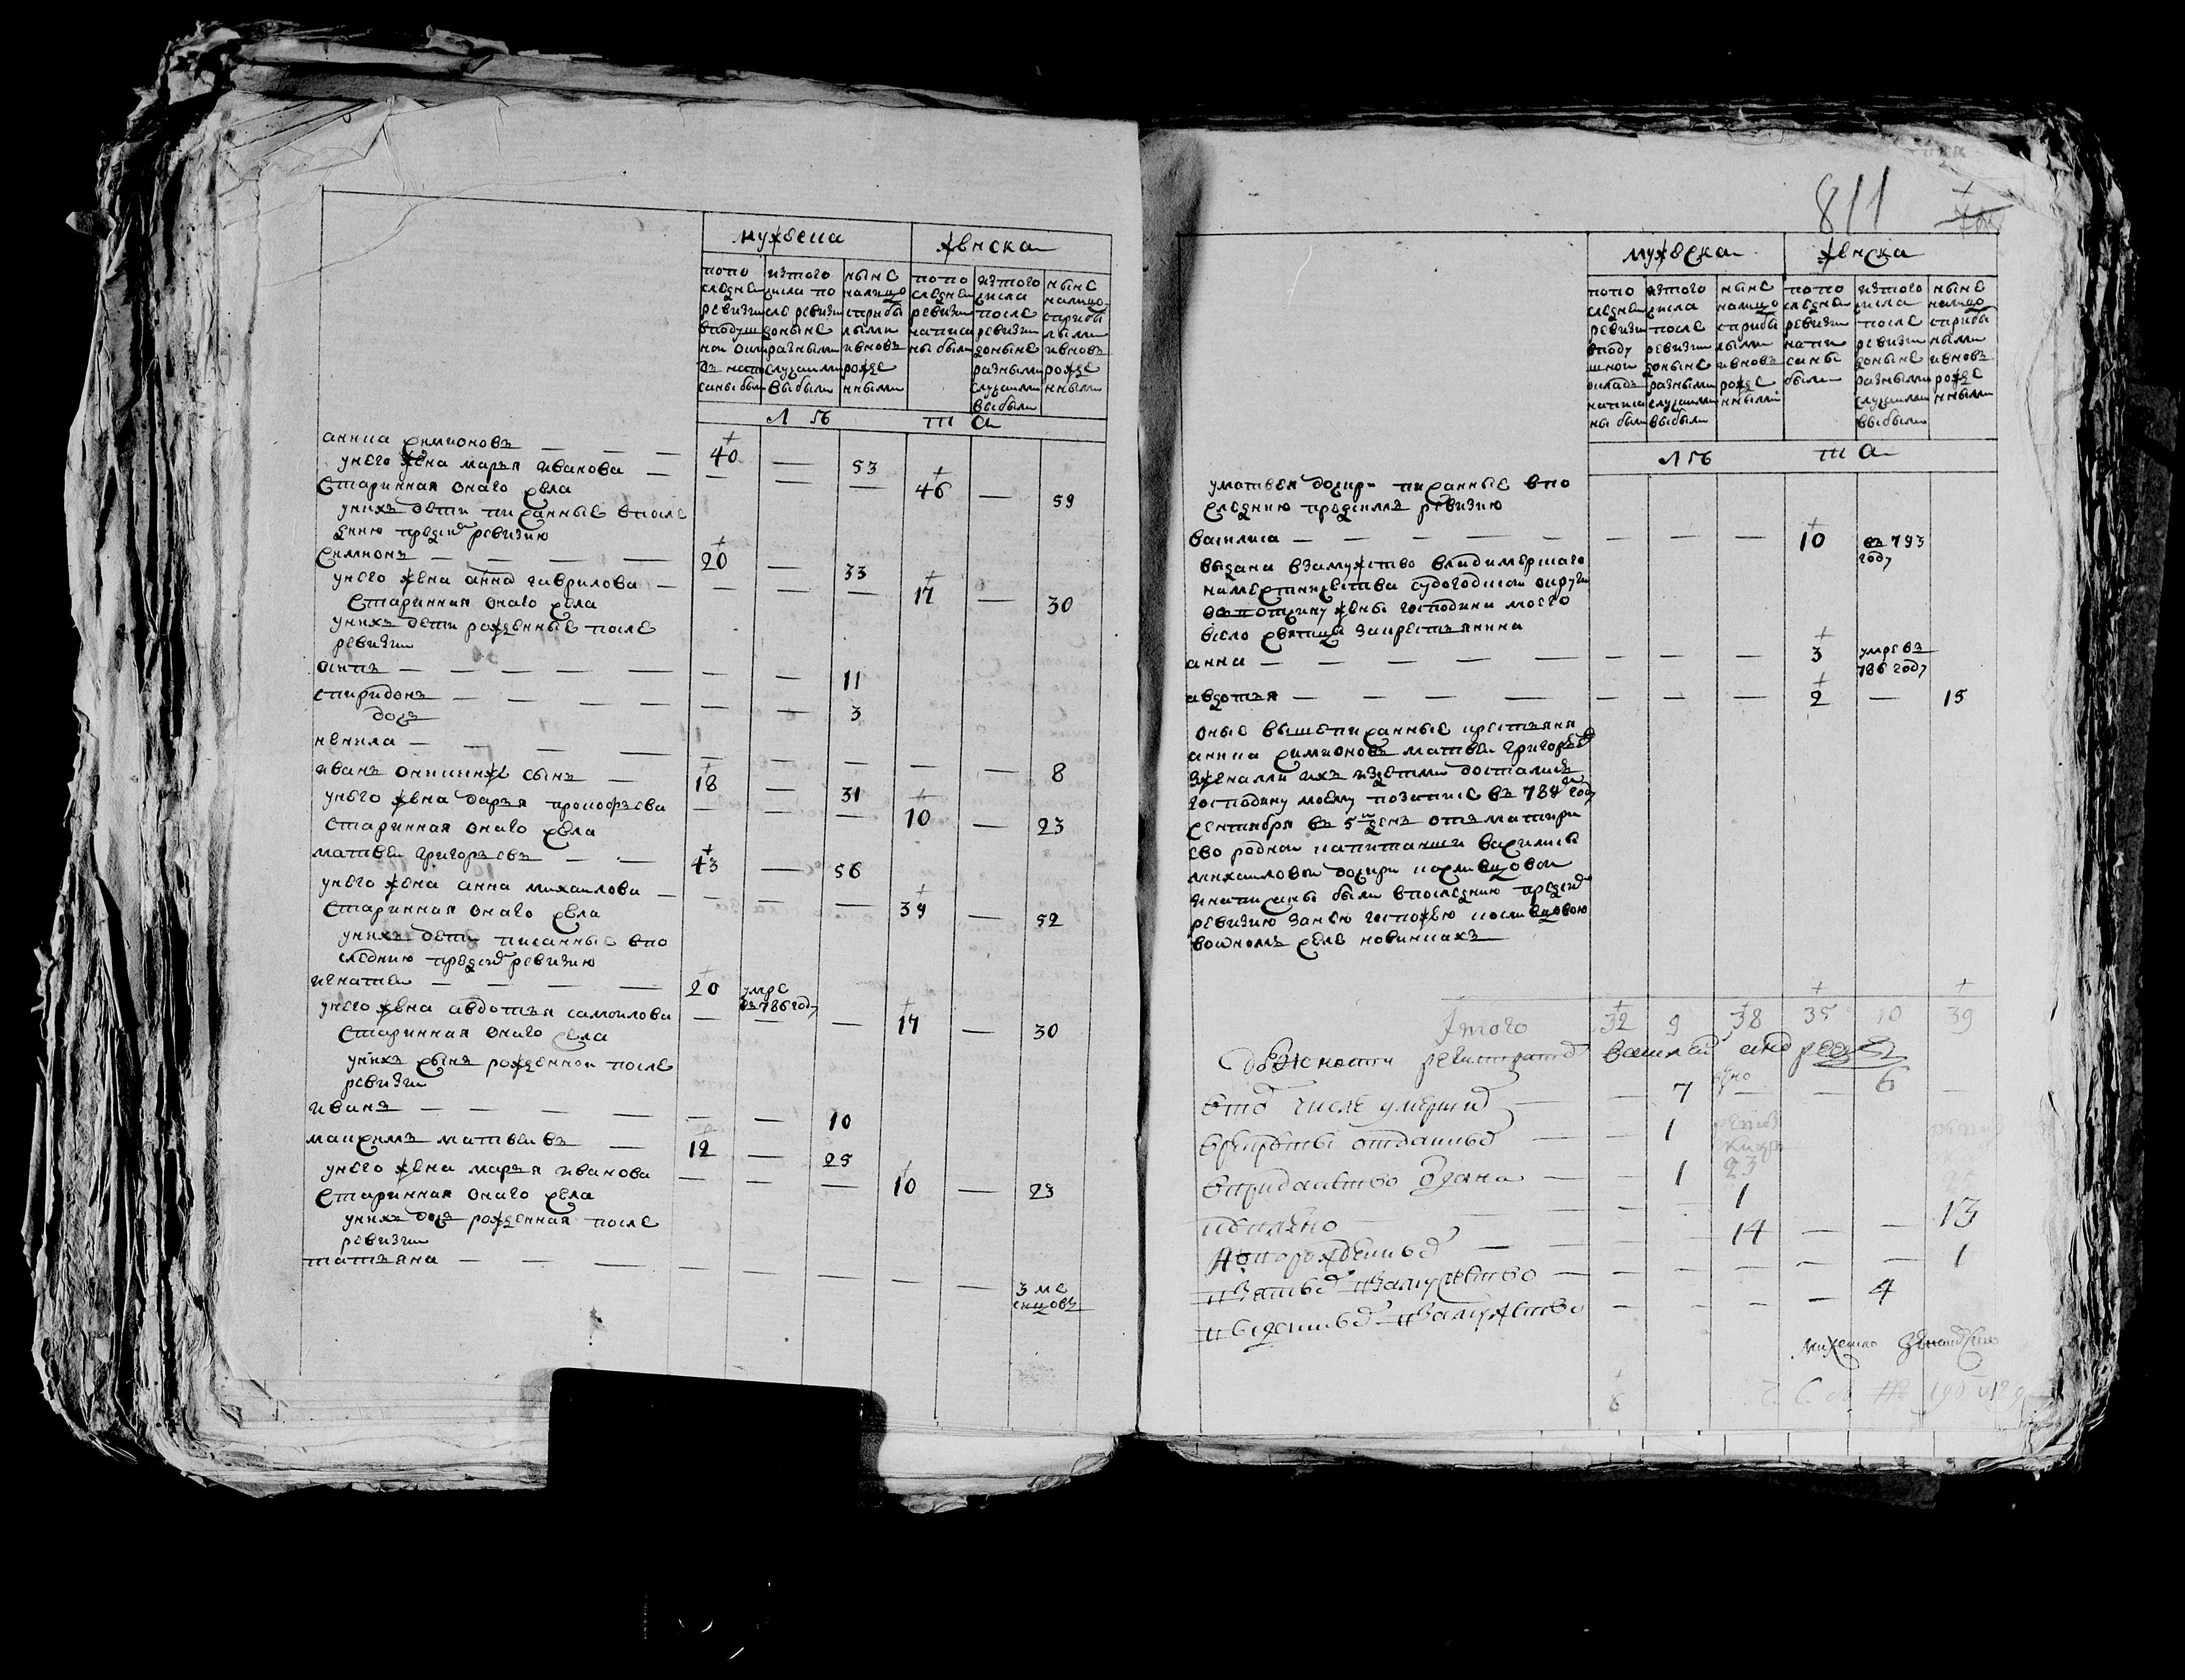 мужеска женска
по по следнеи ревизии в подуш нои окладъ напи саны были
изтого числа по сле ревизии доныне разными случаими выбыли
ныне налицо с прибы лыми и вновъ рожде нными
по по следнеи ревизии написа ны были
изтого числа после ревизии доныне разными случаими выбыли
ныне налицо с прибы лыми и вновъ рожде нными
лѣ та
аника симионовъ — — — 40 — 53
унего жена марья иванова — — — — 46 — 59
старинная онаго села
унихъ дети писанные в после
днюю пред сию ревизию
симионъ — — — — 20 — 33
унего жена анна гаврилова — — — — 17 — 30
старинная онаго села
унихъ дети рожденные после
ревизии
осипъ — — — — — — — 11
спиридонъ — — — — — — 3
дочь
ненила — — — — — — — — — 8
иванъ сынъ — 18 — 31
унего жена дарья прокофъева — — — 10 — 23
старинная онаго села
матвеи григоръевъ — — 43 — 56
унего жена анна михаилова — — — — 39 — 52
старинная онаго села
унихъ дети писанные в по
следнюю пред сию ревизию
игнатеи — — — — 20 умре въ 786 году
унего жена авдотья самоилова — — — 17 — 30
старинная онаго села
унихъ сынъ рожденнои после
ревизии
иванъ — — — — — — 10
максимъ матвеивъ — 12 — 25
унего жена марья иванова — — — 10 — 23
старинная онаго села
унихъ дочь рожденная после
ревизии
татьяна — — — — — — — — — 3 ме сяцовъ
811
мужеска женска
по по следнеи ревизии в поду шнои окладъ написа ны были
изтого числа после ревизии доныне разными случаими выбыли
ныне налицо с прибы лыми и вновъ рожде нными
по по следнеи ревизии напи саны были
изтого числа после ревизии доныне разными случаими выбыли
ныне налицо с прибы лыми и вновъ рожде нными
лѣ та
уматвея дочери писанные в по
следнюю пред симъ ревизию
василиса — — — — — — — — 10 въ 793 году
выдана взамужство владимерскаго
наместничества судогодскои округи
въ вотчину жены господина моего
всело святцы закрестьянина
анна — — — — — — — — 3 умре въ 786 году
авдотья — — — — — — — — 2 — 15
оные вышеписанные крестьяня
аника симионовъ матвеи григоръевъ
зженами ихъ издетми достались
господину моему позаписе въ 784м году
сентября въ 5й день отъ матери
ево роднои капитанши василисы
михаиловои дочери
инаписаны были впоследнюю пред сию
ревизию занею госпожею
воономъ селе новинкахъ
Итого 32 9 38 35 10 39
должности регистратор василей андреевъ
втом числе умерших — — 7 — — 6 —
врекруты отданных — — 1
в отдана — — 1 23
— — — 1
новорожденных — — — 14 — — 13
и взятых в замужество — — — — — — 1
и выданных в замужство — — — — — 4
михаило